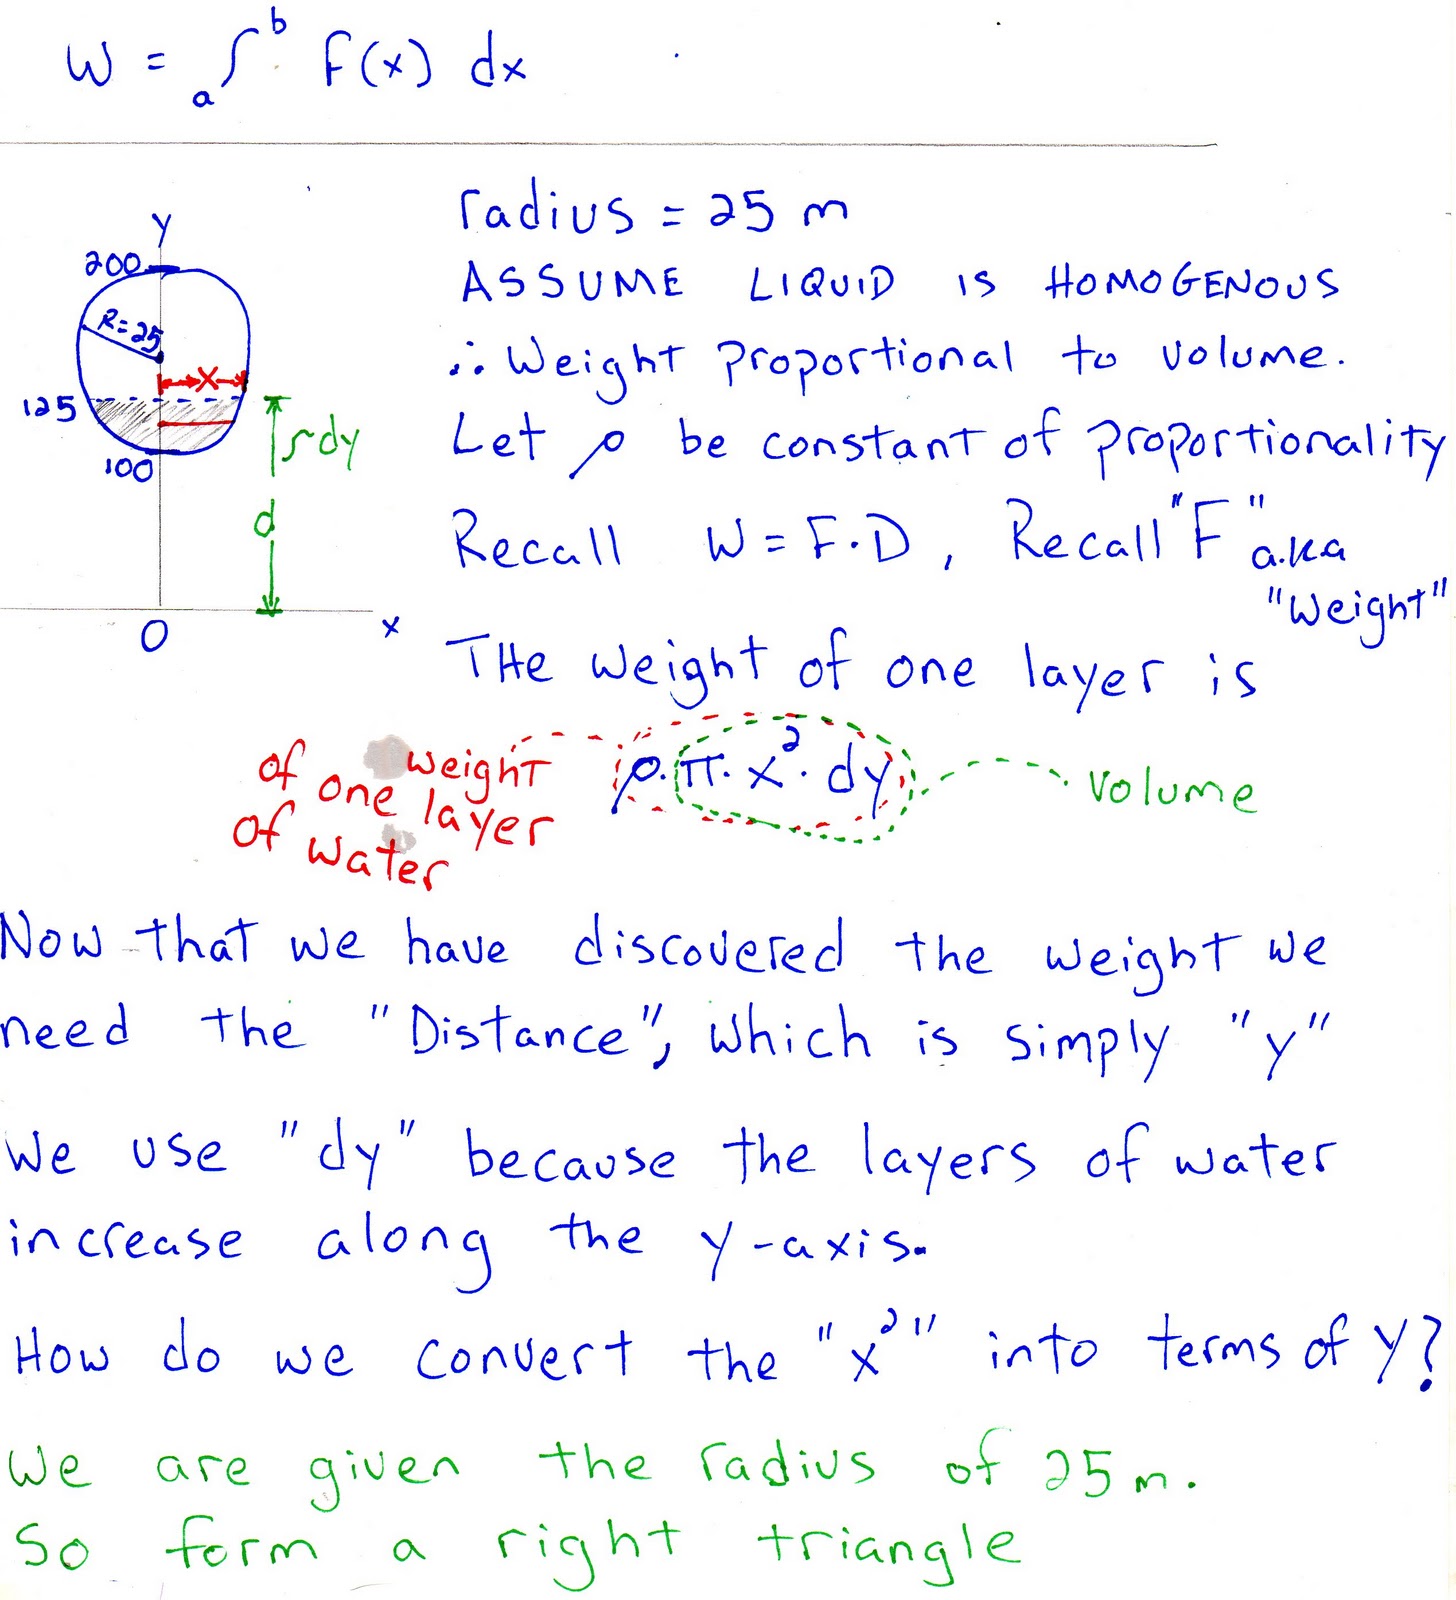 W = a∫b F(x) dx
radius = 25 m
y
200
ASSUME LIQUID IS HOMOGENOUS
R=25
∴ Weight proportional to volume.
x
125
∫dy
Let ρ be constant of proportionality
100
d
Recall W = F·D, Recall "F" a.k.a
"Weight"
0
x
THe weight of one layer is
weight
of one layer
of water
ρ·π·x²·dy
volume
Now that we have discovered the weight we
need the "Distance", which is simply "y"
We use "dy" because the layers of water
increase along the y-axis.
How do we convert the "x²" into terms of y?
We are given the radius of 25 m.
So form a right triangle